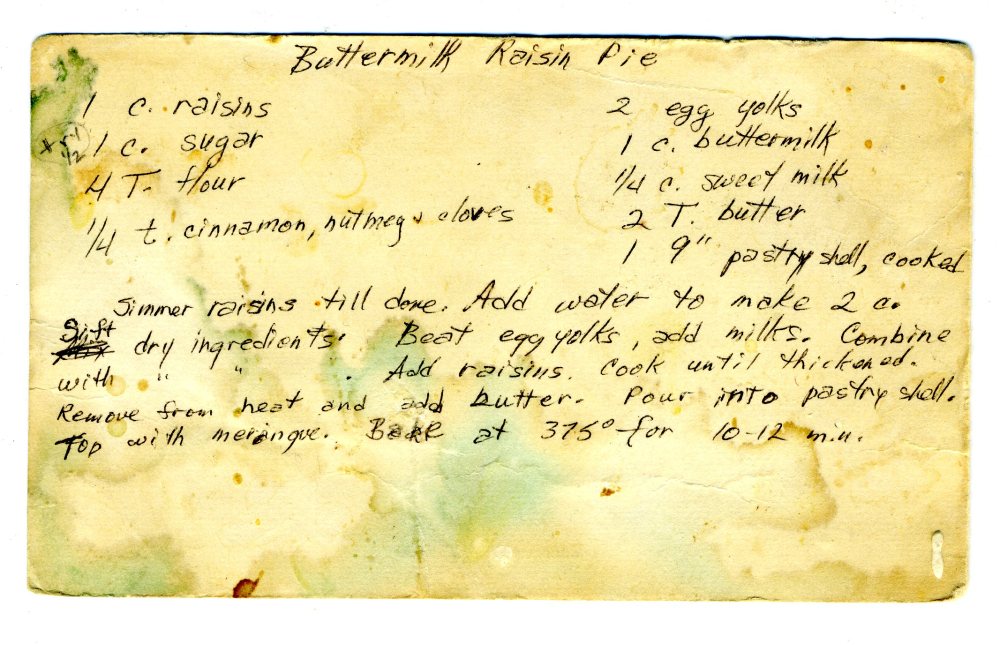 Buttermilk Raisin Pie
1 c. raisins
1 c. sugar
4 T. flour
1/4 t. cinnamon, nutmeg & cloves
2 egg yolks
1 c. buttermilk
1/4 c. sweet milk
2 T. butter
1 9" pastry shell, cooked
Simmer raisins till done. Add water to make 2 c.
Sift dry ingredients. Beat egg yolks, add milks. Combine
with " " . Add raisins. Cook until thickened.
Remove from heat and add butter. Pour into pastry shell.
Top with meringue. Bake at 375° for 10-12 min.